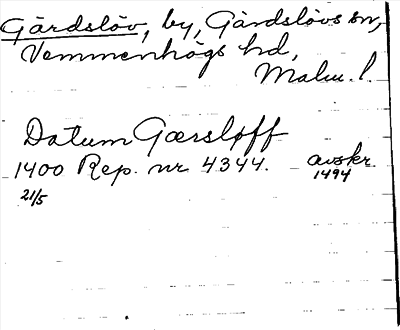 Gärdslöv, by, Gärdslövs sn,
Vemmenhögs hd,
Malm. l.
Datum Gærsløff
1400 Rep. nr 4344. avskr.
21/5 1494